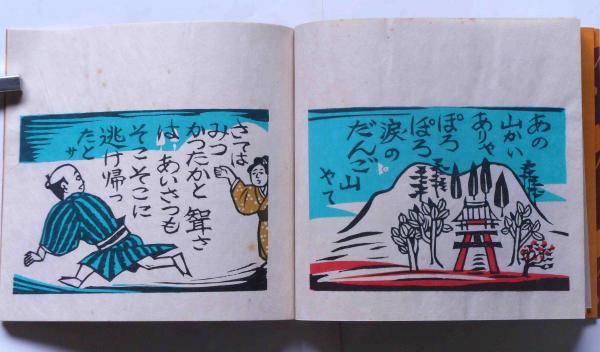 あの
山かい
ありや
ぽろ
ぽろ
涙の
だんご山
やて
さては
みつ
かつたかと 聟さ
は、あいさつも
そこそこに
逃げ帰っ
たとサ